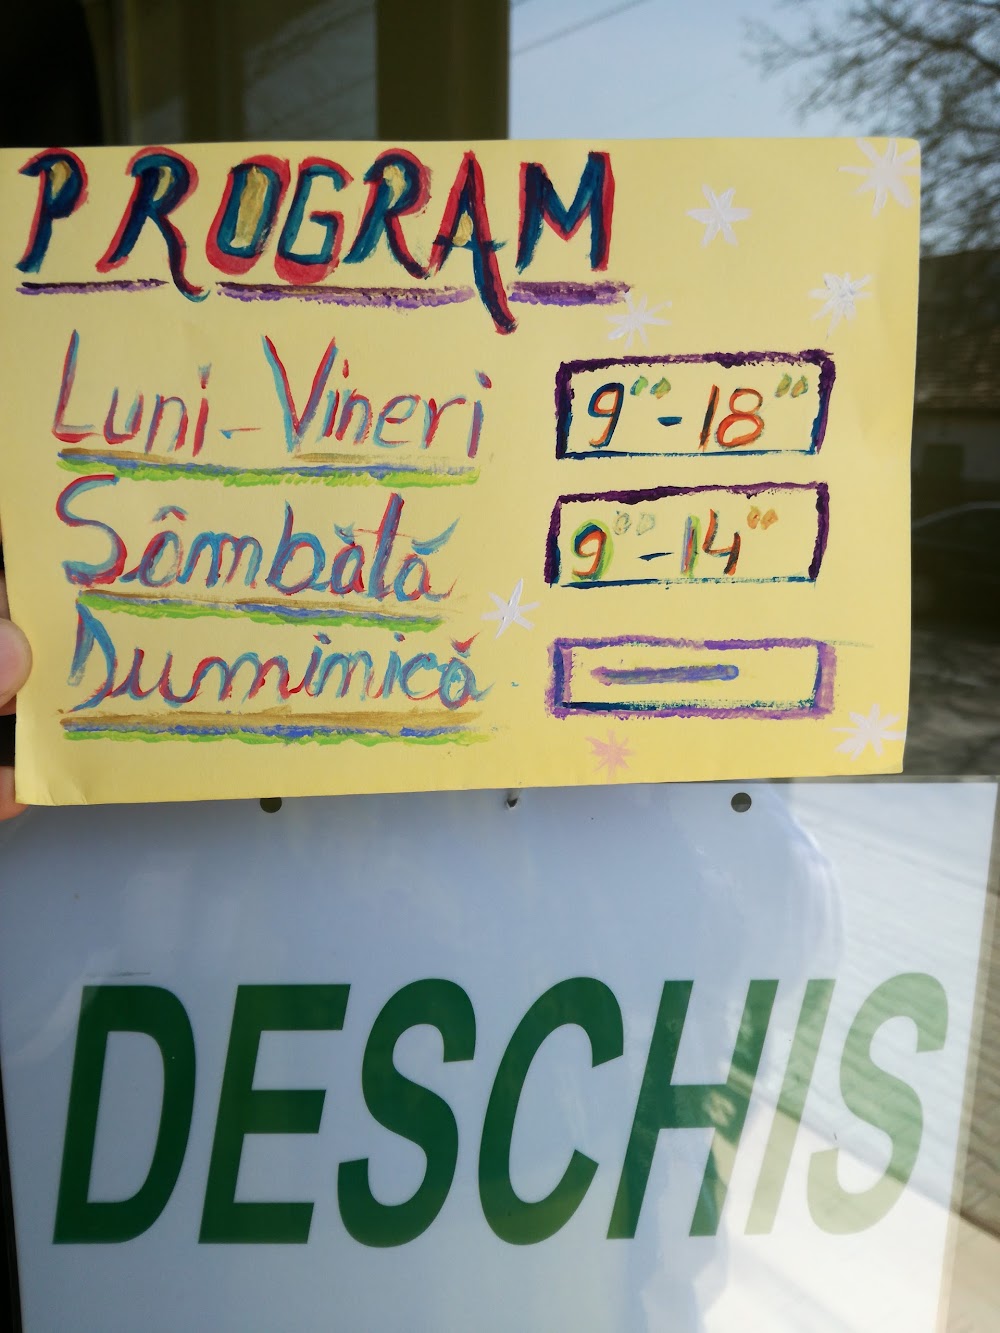 PROGRAM
Luni - Vineri 9⁰⁰ - 18⁰⁰
Sâmbătă 9⁰⁰ - 14⁰⁰
Duminică —
DESCHIS